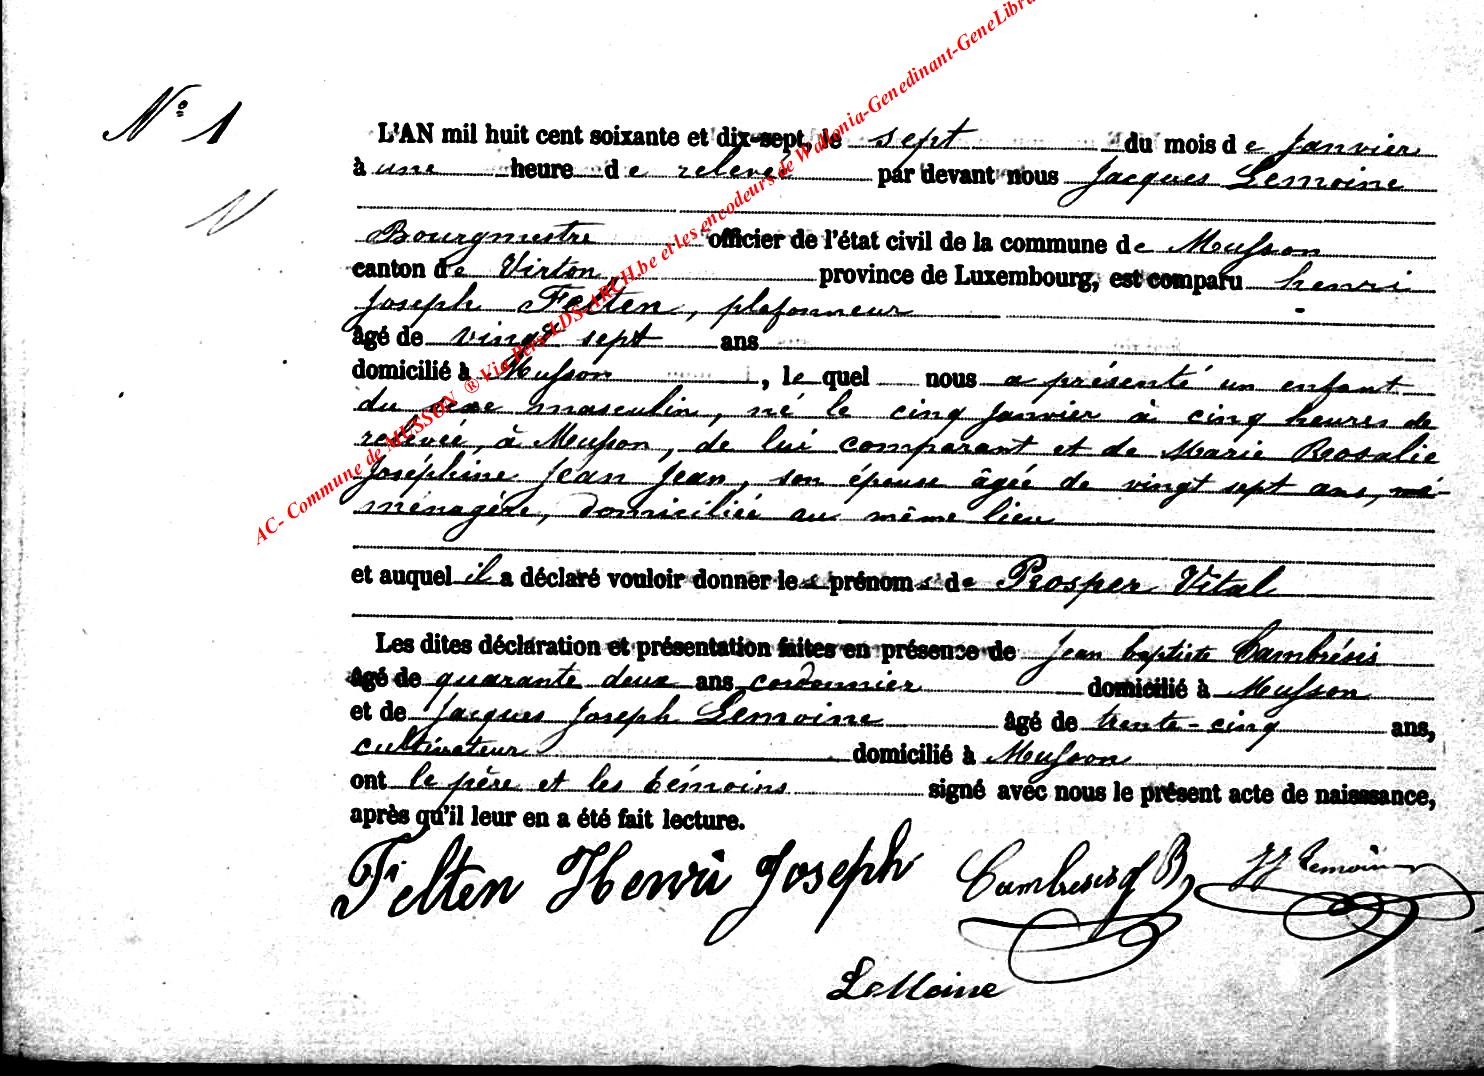 N° 1
L'AN mil huit cent soixante et dix-sept, le sept du mois de Janvier
à une heure de relevée par devant nous Jacques Lemoine
Bourgmestre officier de l'état civil de la commune de Musson
canton de Virton, province de Luxembourg, est comparu henri
Joseph Felten, plafonneur
âgé de vingt sept ans
domicilié à Musson, le quel nous a présenté un enfant
du sexe masculin, né le cinq Janvier à cinq heures de
relevée, à Musson, de lui comparant et de Marie Rosalie
Joséphine Jean Jean, son épouse âgée de vingt sept ans, mé-
ménagère, domiciliée au même lieu
et auquel il a déclaré vouloir donner les prénoms de Prosper Vital
Les dites déclaration et présentation faites en présence de Jean baptiste Cambrésis
âgé de quarante deux ans cordonnier domicilié à Musson
et de Jacques Joseph Lemoine âgé de trente-cinq ans,
cultivateur domicilié à Musson
ont le père et les témoins signé avec nous le présent acte de naissance,
après qu'il leur en a été fait lecture.
Felten Henri Joseph Cambresis J B JJ Lemoine
LeMoine
AC- Commune de MUSSON ® Via Pers-LDS-ARCH.be et les encodeurs de Wallonia-Genedinant-GeneLibra